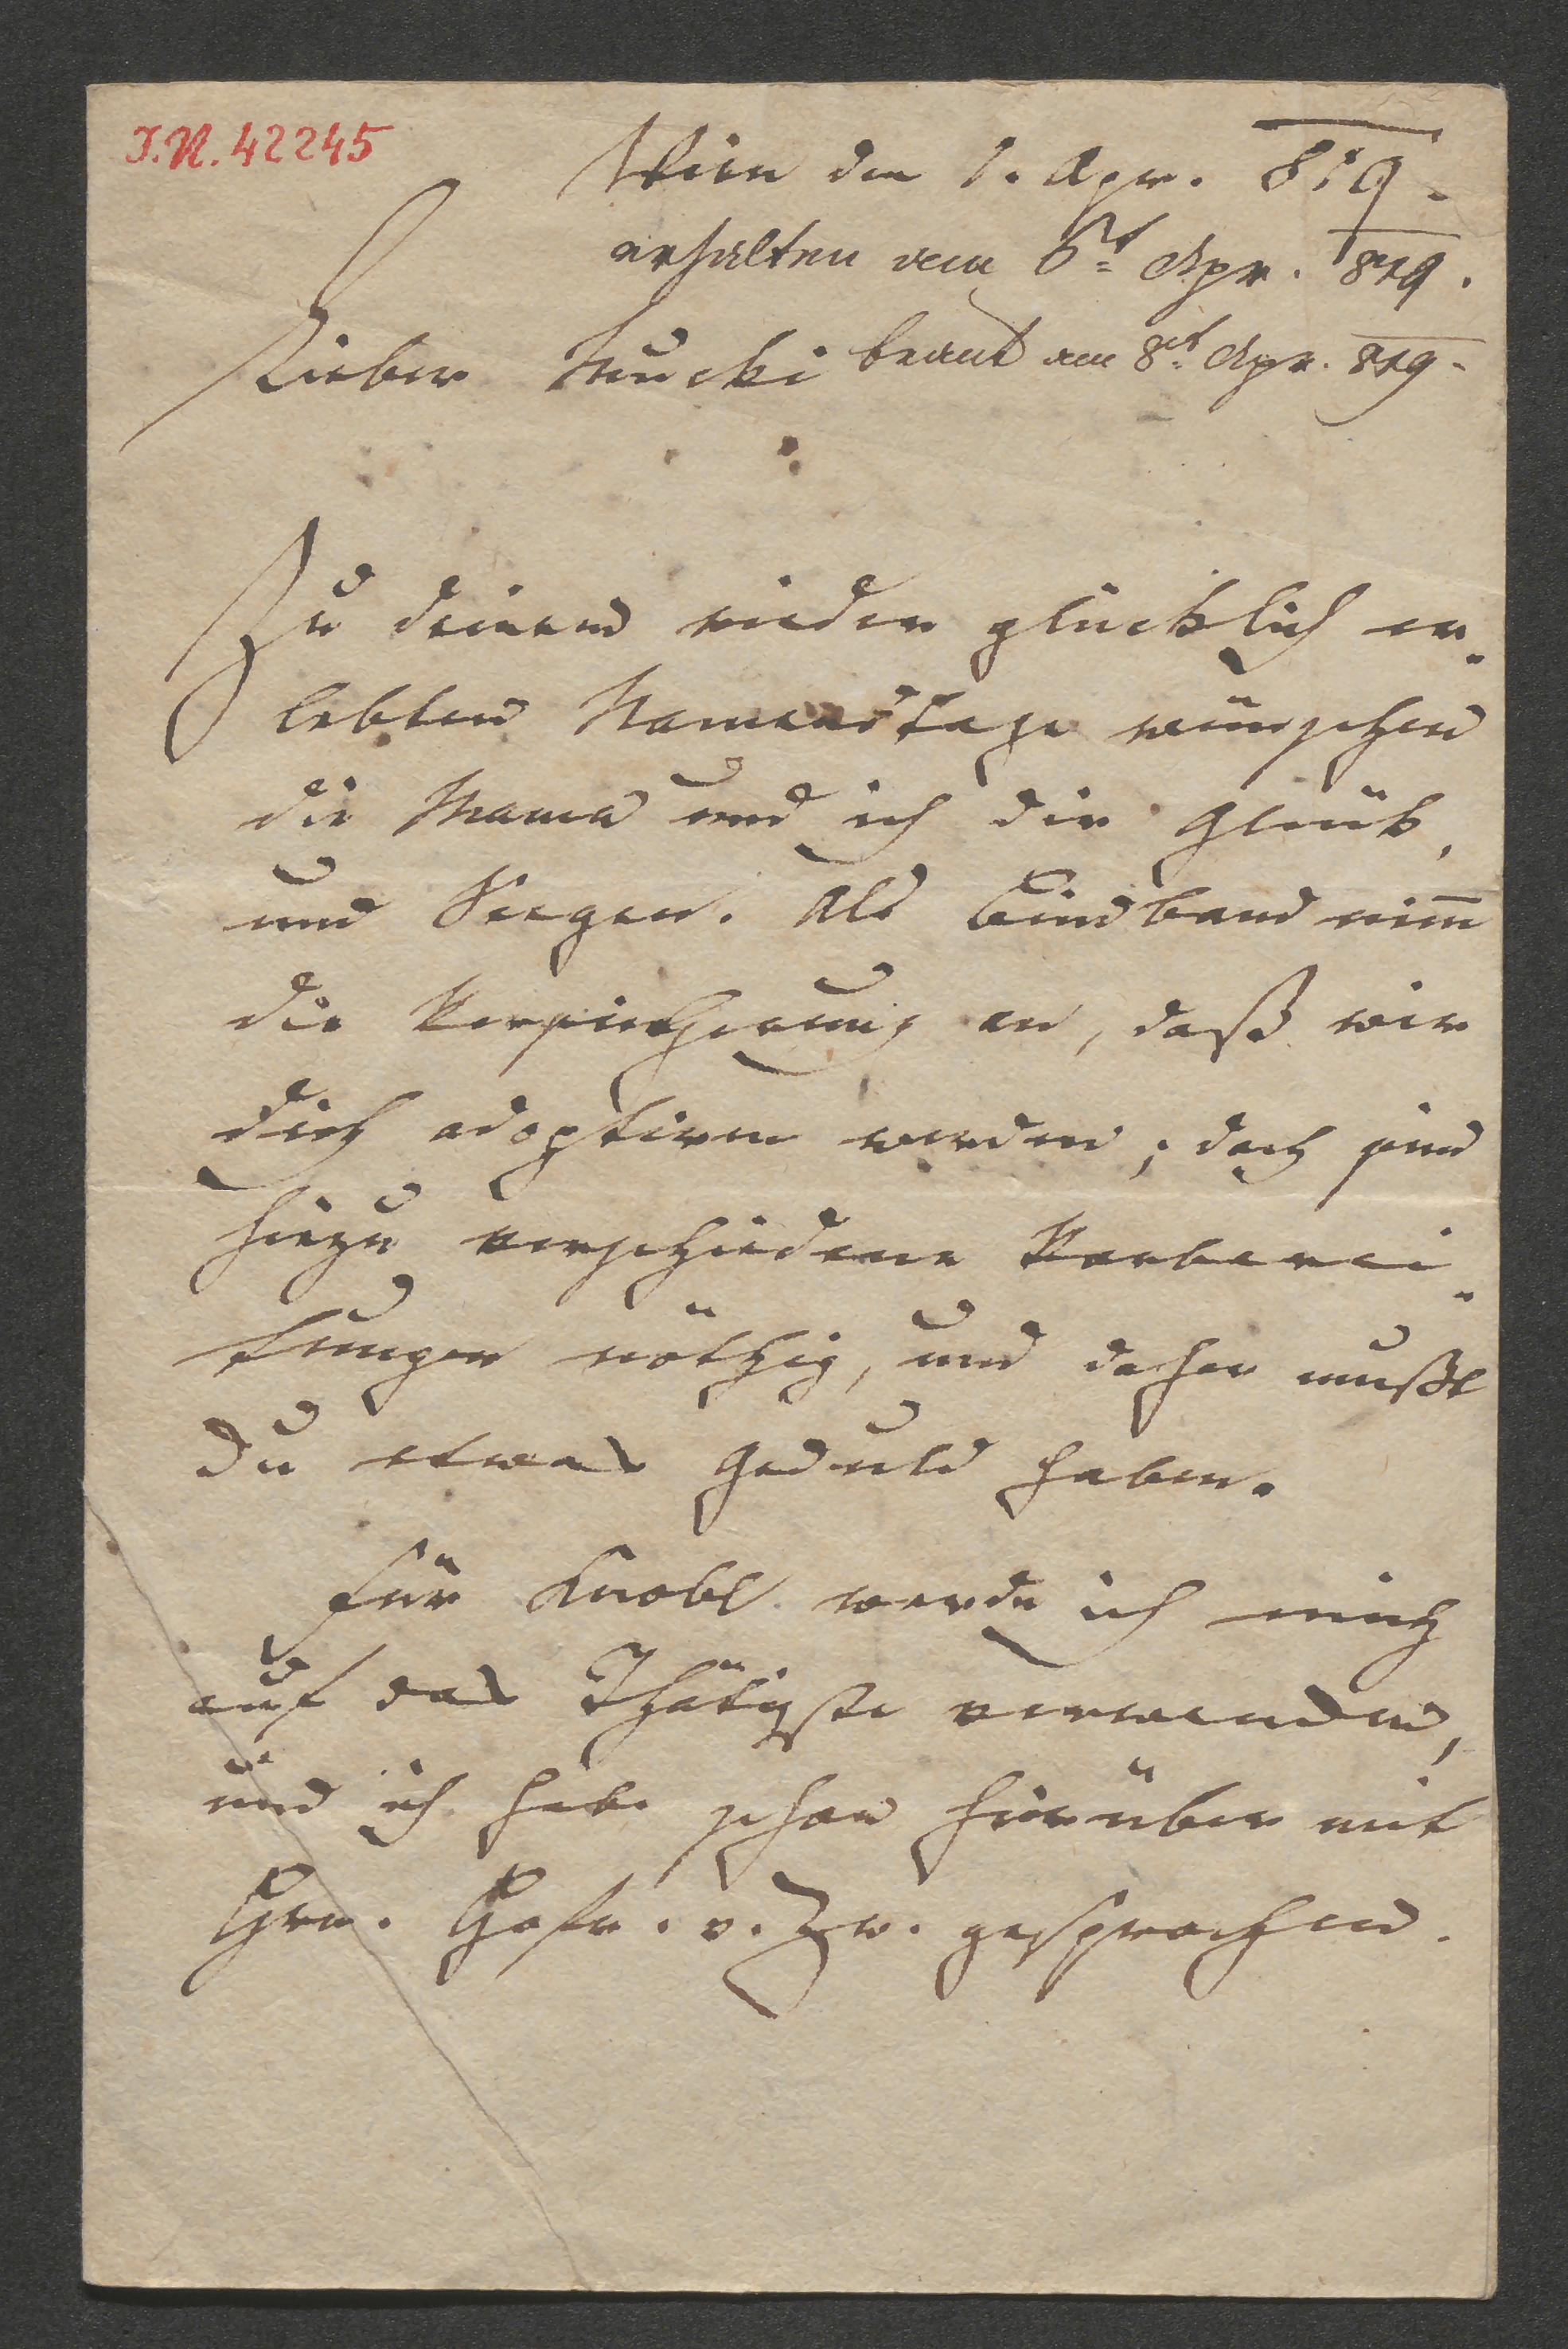 I.N. 42245
Wien den 1. Apr. 819.
erhalten am 6t Apr. 819.
Lieber Mucki beant am 8t Apr. 819.
Zu deinem wieder glücklich er-
lebten Namenstage wünschen
die Mama und ich dir Glük,
und Seegen. Als Bindband nim̄
die Versicherung an, daß wir
dich adoptiren werden; doch sind
hiezu verschiedene Vorberei-
tungen nöthig, und daher mußt
du etwas Geduld haben.
Für Knobl werde ich mich
auf das Thätigste verwenden,
und ich habe schon hierüber mit
Hrn. Hofr. v. Zw. gesprochen.